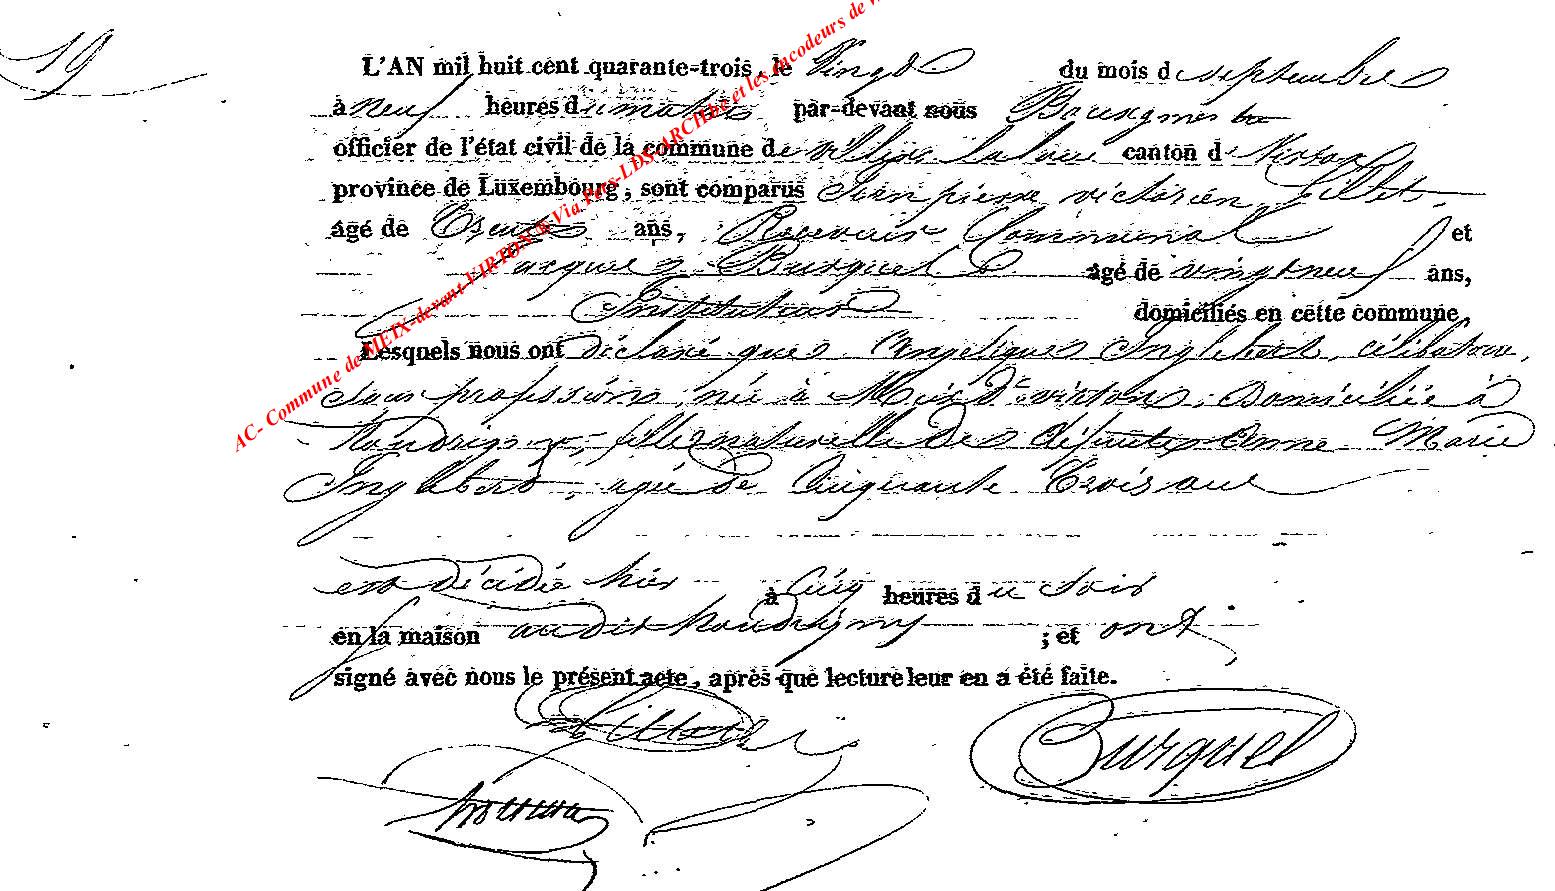 19
L'AN mil huit cent quarante-trois, le Vingt du mois de septembre
à neuf heures du matin par-devant nous Bourgmestre
officier de l'état civil de la commune de villers la loue canton de Virton
province de Luxembourg, sont comparus Jean pierre victorien
âgé de Trente ans, Receveur Communal et
Jacques Burquel âgé de vingt neuf ans,
Instituteur domiciliés en cette commune,
Lesquels nous ont déclaré que Angelique Inglebert, célibataire,
sans profession, née à Meix dt virton, Domiciliée à
Houdrigny, fille naturelle de défunte Anne Marie
Inglebert, agée de Cinquante Trois ans
est décédée hier à cinq heures du soir
en la maison audit houdrigny ; et ont
signé avec nous le présent acte, après que lecture leur en a été faite.
Burquel
AC- Commune de MEIX-devant-VIRTON Via Pays-LDS-ARCH.be et les encodeurs de